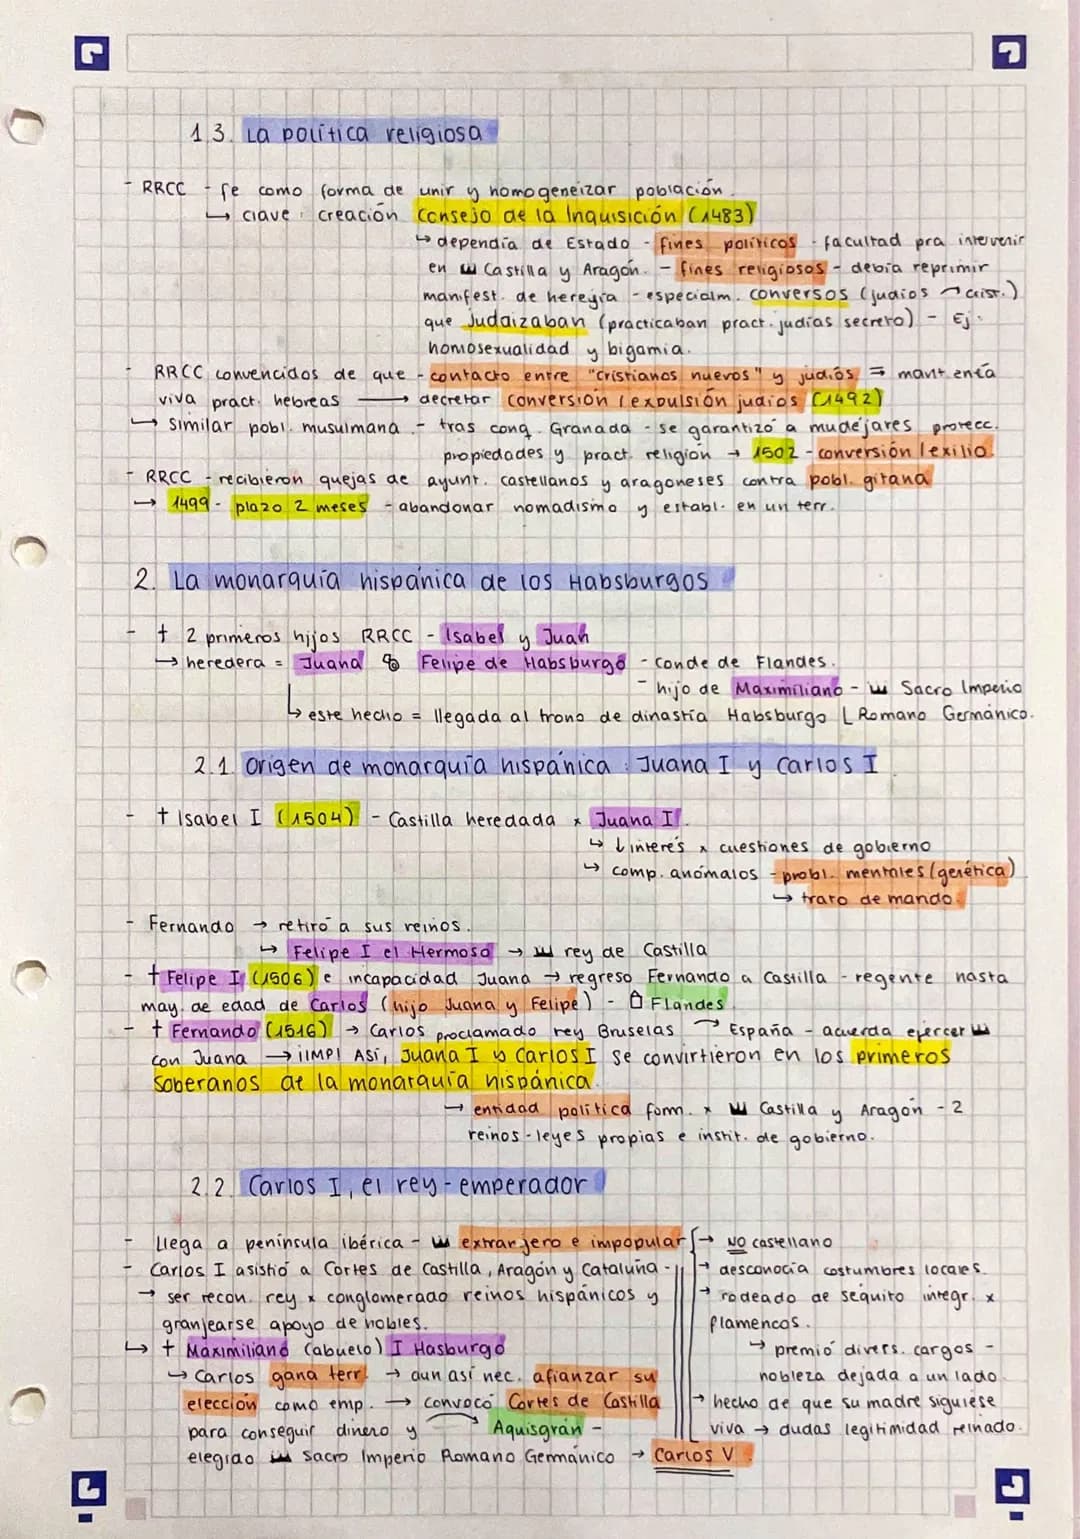 1.3. La política religiosa
- RRCC - fe como forma de unir y homogeneizar población.
↳ clave: creación Consejo de la Inquisición (1483)
↳ dependía de Estado - fines políticos - facultad pra intervenir
en Castilla y Aragón. - fines religiosos - debía reprimir
manifest. de herejía - especialm. conversos (judíos → crist.)
que judaizaban (practicaban pract. judías secreto) - Ej:
homosexualidad y bigamia.
- RRCC convencidos de que - contacto entre "cristianos nuevos" y judíos ⇒ mantenía
viva pract. hebreas → decretar conversión / expulsión judíos (1492)
↳ Similar pobl. musulmana - tras conq. Granada - se garantizó a mudéjares protecc.
propiedades y pract. religión → 1502 - conversión / exilio.
- RRCC - recibieron quejas de ayunt. castellanos y aragoneses contra pobl. gitana
→ 1499 - plazo 2 meses - abandonar nomadismo y establ. en un terr.
2. La monarquía hispánica de los Habsburgos
- † 2 primeros hijos RRCC - Isabel y Juan
→ heredera = Juana Felipe de Habsburgo - conde de Flandes.
- hijo de Maximiliano - Sacro Imperio
↳ este hecho = llegada al trono de dinastía Habsburgo Romano Germánico.
2.1. Origen de monarquía hispánica: Juana I y Carlos I
- † Isabel I (1504) - Castilla heredada x Juana I.
↳ ↓ interés x cuestiones de gobierno
↳ comp. anómalos - probl. mentales (genética)
↳ trato de mando.
- Fernando → retiró a sus reinos.
↳ Felipe I el Hermoso → rey de Castilla
- † Felipe I (1506) e incapacidad Juana → regreso Fernando a Castilla - regente hasta
may. de edad de Carlos (hijo Juana y Felipe) - Flandes.
- † Fernando (1516) → Carlos proclamado rey Bruselas → España - acuerda ejercer
con Juana → ¡IMP! Así, Juana I y Carlos I se convirtieron en los primeros
soberanos de la monarquía hispánica.
→ entidad política form. x Castilla y Aragón - 2
reinos - leyes propias e instit. de gobierno.
2.2. Carlos I, el rey-emperador
- Llega a península ibérica - extranjero e impopular → NO castellano
- Carlos I asistió a Cortes de Castilla, Aragón y Cataluña - → desconocía costumbres locales.
→ ser recon. rey x conglomerado reinos hispánicos y → rodeado de séquito integr. x
granjearse apoyo de nobles. flamencos.
↳ † Maximiliano (abuelo) I Hasburgo → premió divers. cargos -
→ Carlos gana terr. → aun así nec. afianzar su nobleza dejada a un lado.
elección como emp. → convocó Cortes de Castilla → hecho de que su madre siguiese
para conseguir dinero y Aquisgrán - viva → dudas legitimidad reinado.
elegido Sacro Imperio Romano Germánico → Carlos V.